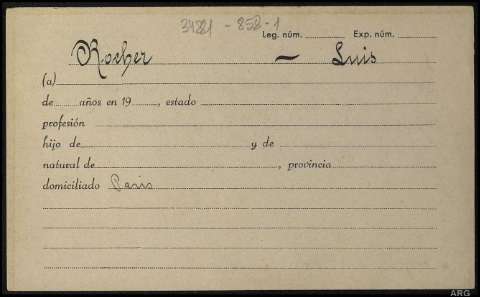 34221 - 252-1
Leg. núm. Exp. núm.
Rocher — Luis
(a)
de años en 19 , estado
profesión
hijo de y de
natural de , provincia
domiciliado Paris
ARG